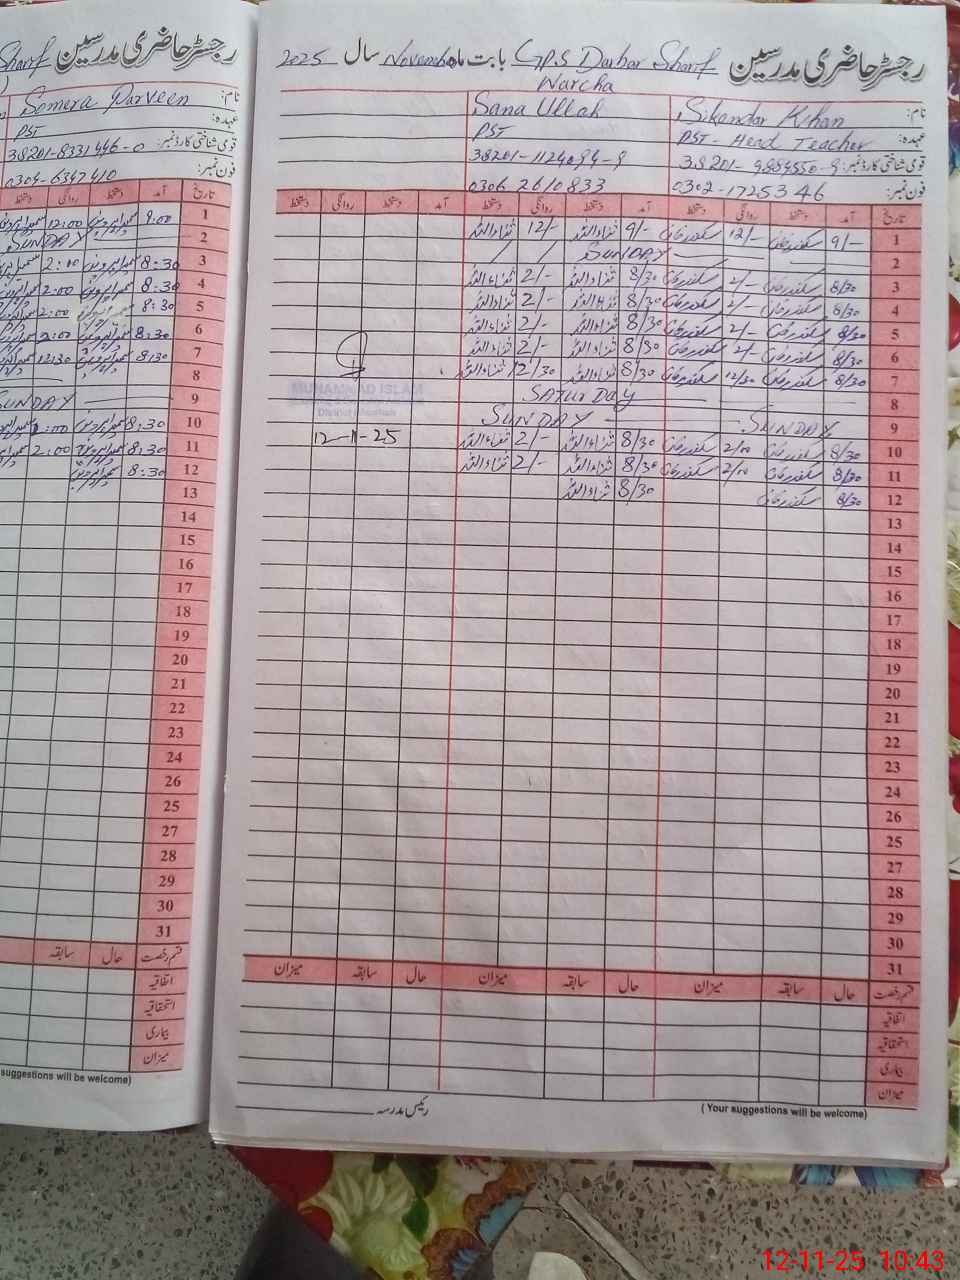 رجسٹر حاضری مدرسین G.P.S Darbar Sharif بابت ماہ November سال 2025
Warcha
نام: Sikandar Khan Sana Ullah
عہدہ: PST - Head Teacher PST
قومی شناختی کارڈ نمبر: 38201-9884550-9 38201-1124094-9
فون نمبر: 0302-1725346 0306 2610833
تاریخ آمد دستخط روانگی دستخط آمد دستخط روانگی دستخط آمد دستخط روانگی دستخط
1 9/- سکندر خان 12/- سکندر خان 9/- ثناء اللہ 12/- ثناء اللہ
2 SUNDAY
3 8/30 سکندر خان 2/- سکندر خان 8/30 ثناء اللہ 2/- ثناء اللہ
4 8/30 سکندر خان 2/- سکندر خان 8/30 ثناء اللہ 2/- ثناء اللہ
5 8/30 سکندر خان 2/- سکندر خان 8/30 ثناء اللہ 2/- ثناء اللہ
6 8/30 سکندر خان 2/- سکندر خان 8/30 ثناء اللہ 2/- ثناء اللہ
7 8/30 سکندر خان 12/30 سکندر خان 8/30 ثناء اللہ 12/30 ثناء اللہ
8 SATURDAY
9 SUNDAY SUNDAY
10 8/30 سکندر خان 2/00 سکندر خان 8/30 ثناء اللہ 2/- ثناء اللہ
11 8/30 سکندر خان 2/00 سکندر خان 8/30 ثناء اللہ 2/- ثناء اللہ
12 8/30 سکندر خان 8/30 ثناء اللہ
MUHAMMAD ISLAM
12-11-25
13
14
15
16
17
18
19
20
21
22
23
24
26
25
27
28
29
30
31
قسم رخصت حال سابقہ میزان حال سابقہ میزان حال سابقہ میزان
اتفاقیہ
استحقاقیہ
بیماری
میزان
(Your suggestions will be welcome)
رئیس مدرسہ
رجسٹر حاضری مدرسین Sharif
نام: Somera Parveen
عہدہ: PST
قومی شناختی کارڈ نمبر: 38201-8331446-0
فون نمبر: 0304-6347410
تاریخ آمد دستخط روانگی دستخط
1 9:00 سمیرا پروین 12:00
2 SUNDAY
3 8:30 سمیرا پروین 2:00
4 8:30 سمیرا پروین 2:00
5 8:30 سمیرا پروین 2:00
6 8:30 سمیرا پروین 2:00
7 8:30 سمیرا پروین 12:30
8
9 SUNDAY
10 8:30 سمیرا پروین 2:00
11 8:30 سمیرا پروین 2:00
12 8:30 سمیرا پروین
13
14
15
16
17
18
19
20
21
22
23
24
26
25
27
28
29
30
31
قسم رخصت حال سابقہ
اتفاقیہ
استحقاقیہ
بیماری
میزان
suggestions will be welcome)
12-11-25 10:43